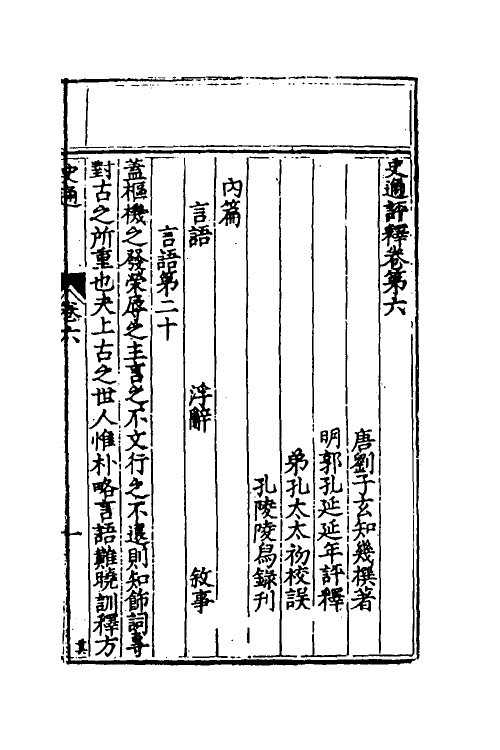 史通評釋卷第六
唐劉子玄知幾撰著
明郭孔延延年評釋
弟孔太太初校誤
孔陵陵舄錄刊
內篇
言語 浮辭 敘事
言語第二十
蓋樞機之發榮辱之主言之不文行之不遠則知飾詞專
對古之所重也夫上古之世人惟朴略言語難曉訓釋方
史通 卷六 一